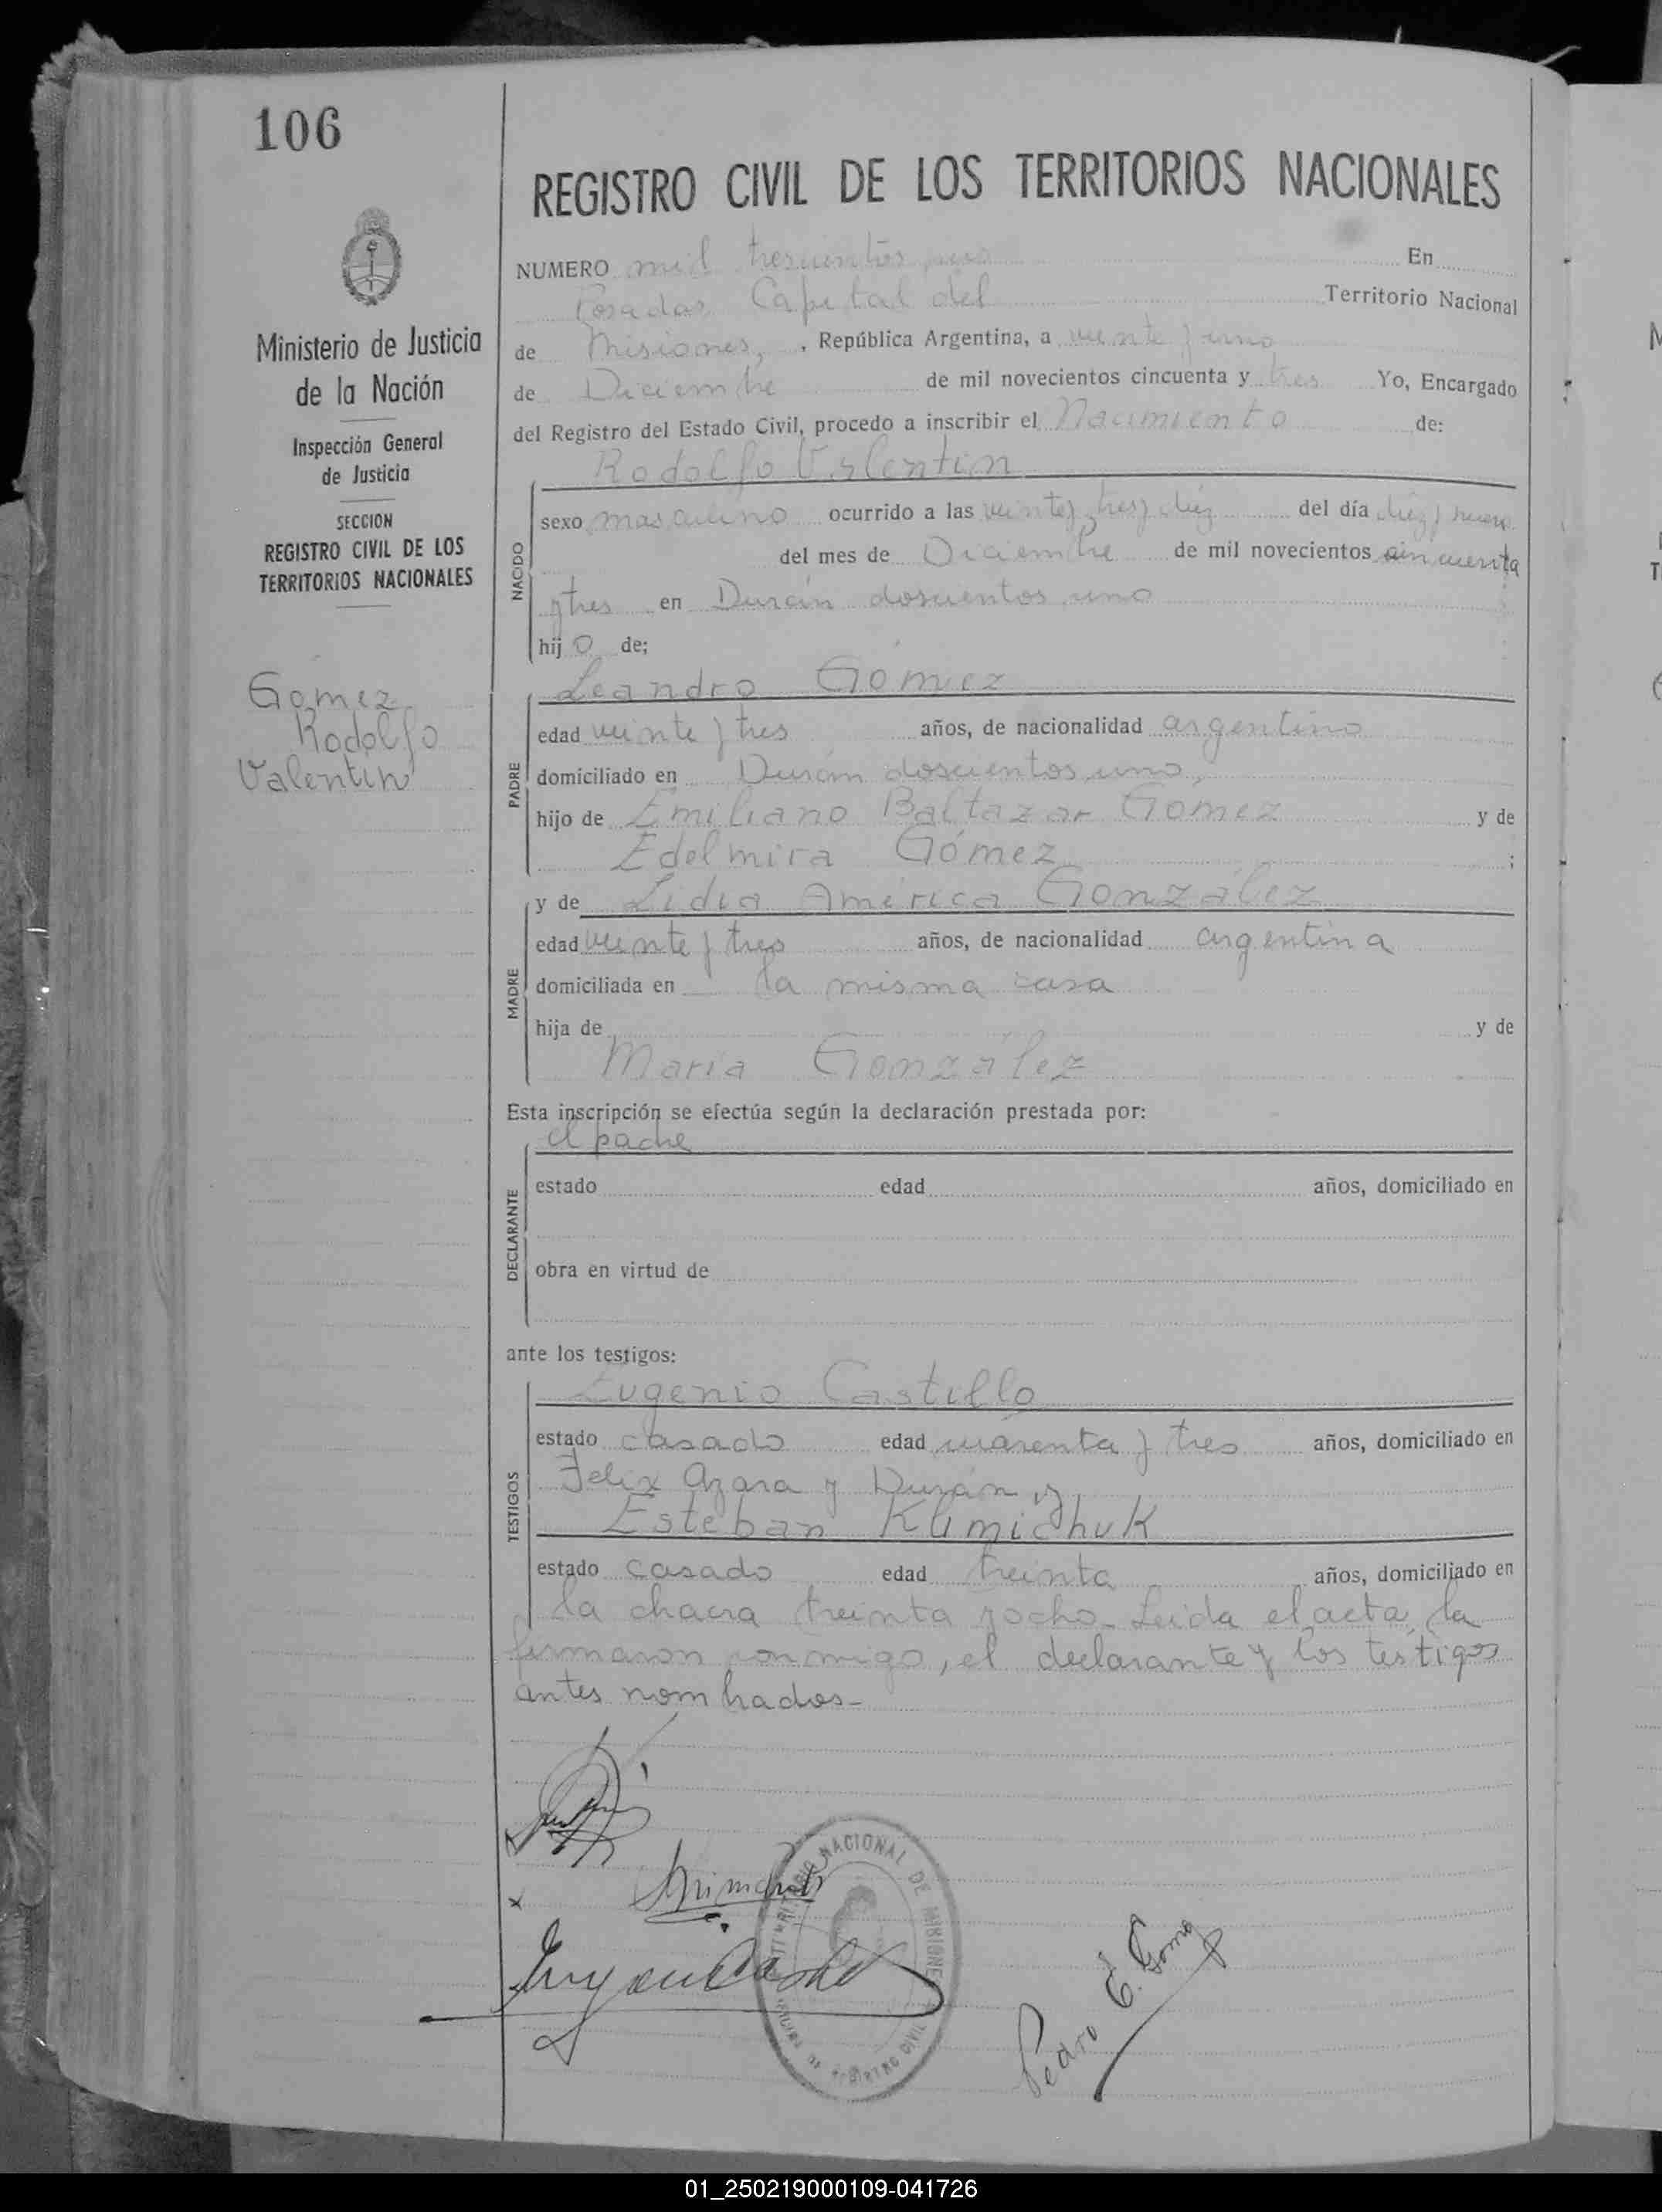 106
REGISTRO CIVIL DE LOS TERRITORIOS NACIONALES
Ministerio de Justicia
de la Nación
Inspección General
de Justicia
SECCION
REGISTRO CIVIL DE LOS
TERRITORIOS NACIONALES
Gomez
Rodolfo
Valentin
NUMERO mil trescientos uno En
Posadas Capital del Territorio Nacional
de Misiones, , República Argentina, a veinte y uno
de Diciembre de mil novecientos cincuenta y tres Yo, Encargado
del Registro del Estado Civil, procedo a inscribir el Nacimiento de:
Rodolfo Valentin
NACIDO
sexo masculino ocurrido a las veinte y tres y diez del día diez y nueve
del mes de Diciembre de mil novecientos cincuenta
y tres en Durán doscientos uno
hij o de;
Leandro Gómez
PADRE
edad veinte y tres años, de nacionalidad argentino
domiciliado en Durán doscientos uno,
hijo de Emiliano Baltazar Gómez y de
Edelmira Gómez ;
y de Lidia América González
MADRE
edad veinte y tres años, de nacionalidad argentina
domiciliada en la misma casa
hija de y de
María González
Esta inscripción se efectúa según la declaración prestada por:
el padre
DECLARANTE
estado edad años, domiciliado en
obra en virtud de
ante los testigos:
Eugenio Castillo
TESTIGOS
estado casado edad cuarenta y tres años, domiciliado en
Felix Azara y Durán y
Esteban Klimichuk
estado casado edad treinta años, domiciliado en
la chacra treinta y ocho. Leida el acta, la
firmaron conmigo, el declarante y los testigos
antes nombrados-
NACIONAL DE MISIONES
REGISTRO CIVIL
Pedro E. Gomez
01_250219000109-041726